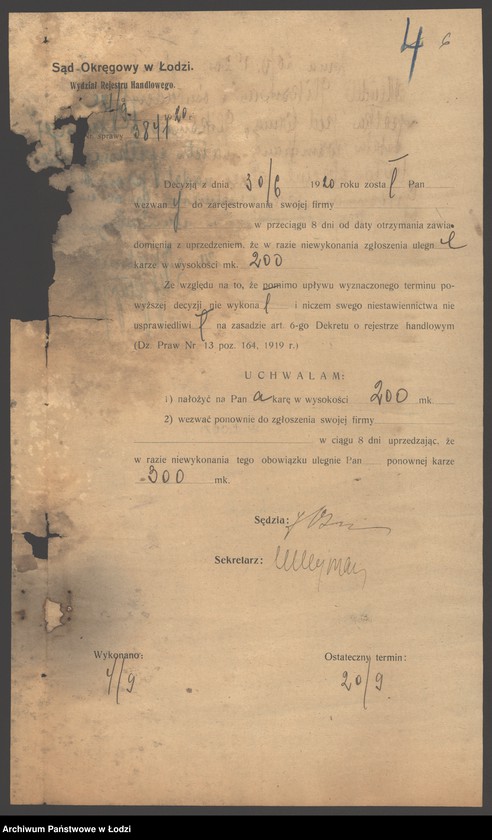 4 6
Sąd Okręgowy w Łodzi.
Wydział Rejestru Handlowego.
Nr. sprawy 3847/20
Decyzją z dnia 30/6 1920 roku został Pan
wezwany do zarejestrowania swojej firmy
w przeciągu 8 dni od daty otrzymania zawia-
domienia z uprzedzeniem, że w razie niewykonania zgłoszenia ulegnie
karze w wysokości mk. 200
Ze względu na to, że pomimo upływu wyznaczonego terminu po-
wyższej decyzji nie wykonał i niczem swego niestawiennictwa nie
usprawiedliwił na zasadzie art. 6-go Dekretu o rejestrze handlowym
(Dz. Praw Nr. 13 poz. 164, 1919 r.)
UCHWALAM:
1) nałożyć na Pana karę w wysokości 200 mk.
2) wezwać ponownie do zgłoszenia swojej firmy
w ciągu 8 dni uprzedzając, że
w razie niewykonania tego obowiązku ulegnie Pan ponownej karze
300 mk.
Sędzia:
Sekretarz:
Wykonano: Ostateczny termin:
4/9 20/9
Archiwum Państwowe w Łodzi